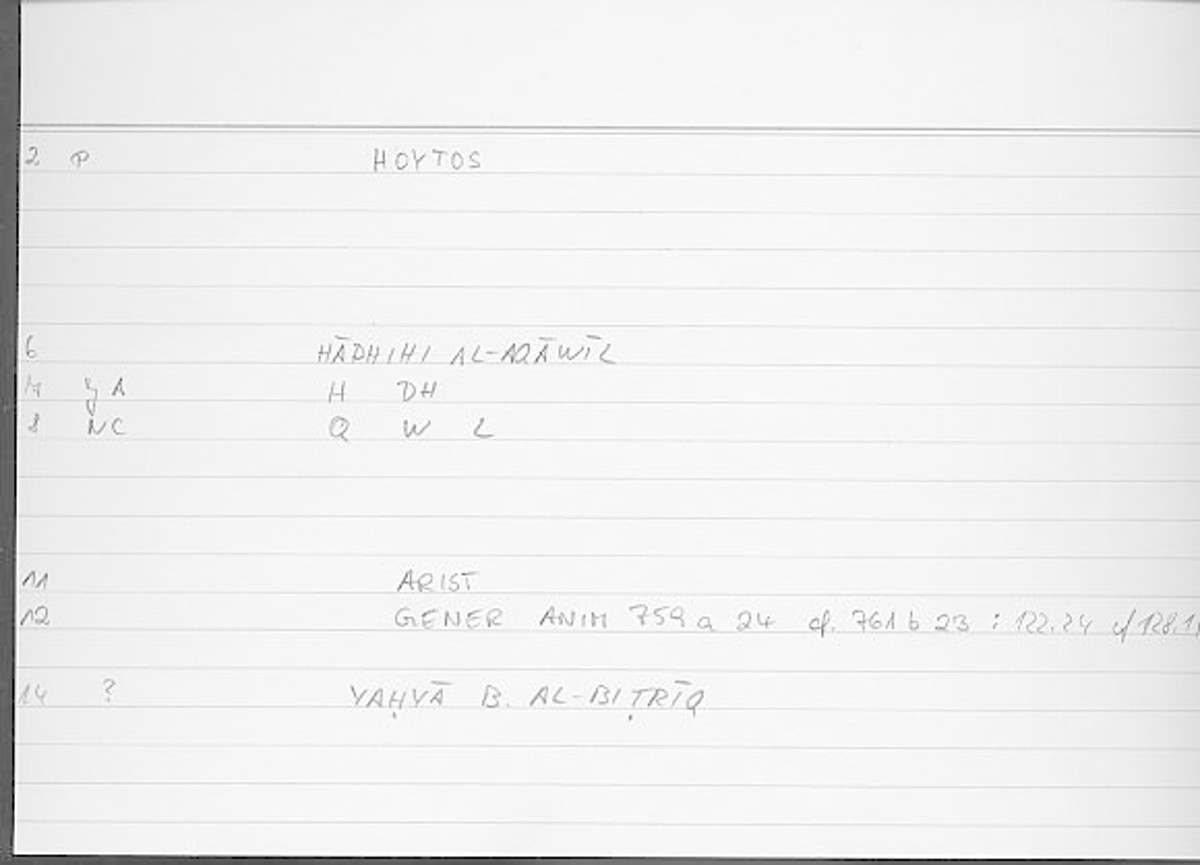 2 P HOYTOS
6 HĀDHIHI AL-AQĀWĪL
A H DH
8 NC Q W L
11 ARIST
12 GENER ANIM 759 a 24 cf. 761 b 23 : 122.24 cf 128.1
14 ? YAḤYĀ B. AL-BIṬRĪQ